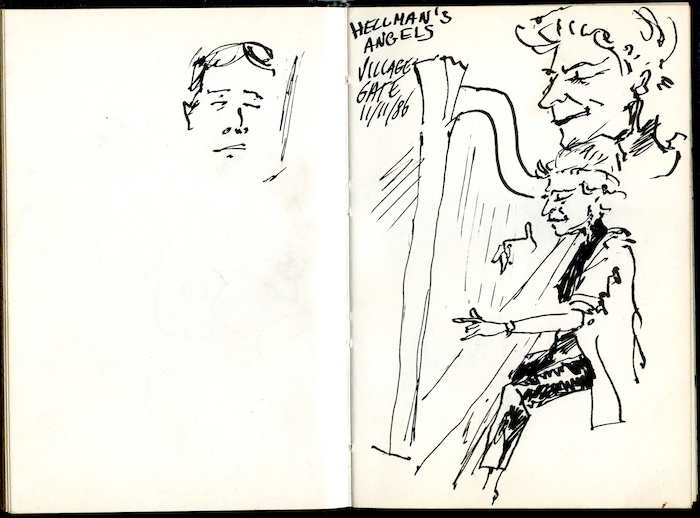 HELLMAN'S
ANGELS
VILLAGE
GATE
11/11/86